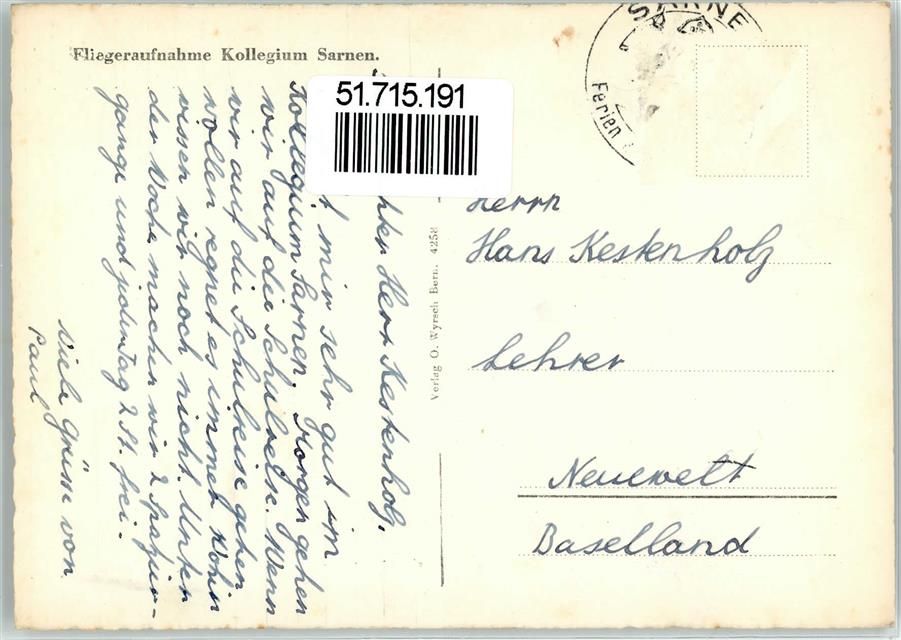 Fliegeraufnahme Kollegium Sarnen.
SARNE
Ferien
51.715.191
Herr Kestenholz,
mir sehr gut im
Kollegium Sarnen. Morgen gehen
wir auf die Schulreise. Wenn
wir auf die Schulreise gehen
wollen regnet es immer. Wohin
wissen wir noch nicht. Unter
der Woche machen wir 2 Spazier-
gänge und jeden Tag 2 St. frei.
Viele Grüsse von
Paul
Verlag O. Wyrsch Bern. 4258
Herrn
Hans Kestenholz
Lehrer
Neuewelt
Baselland